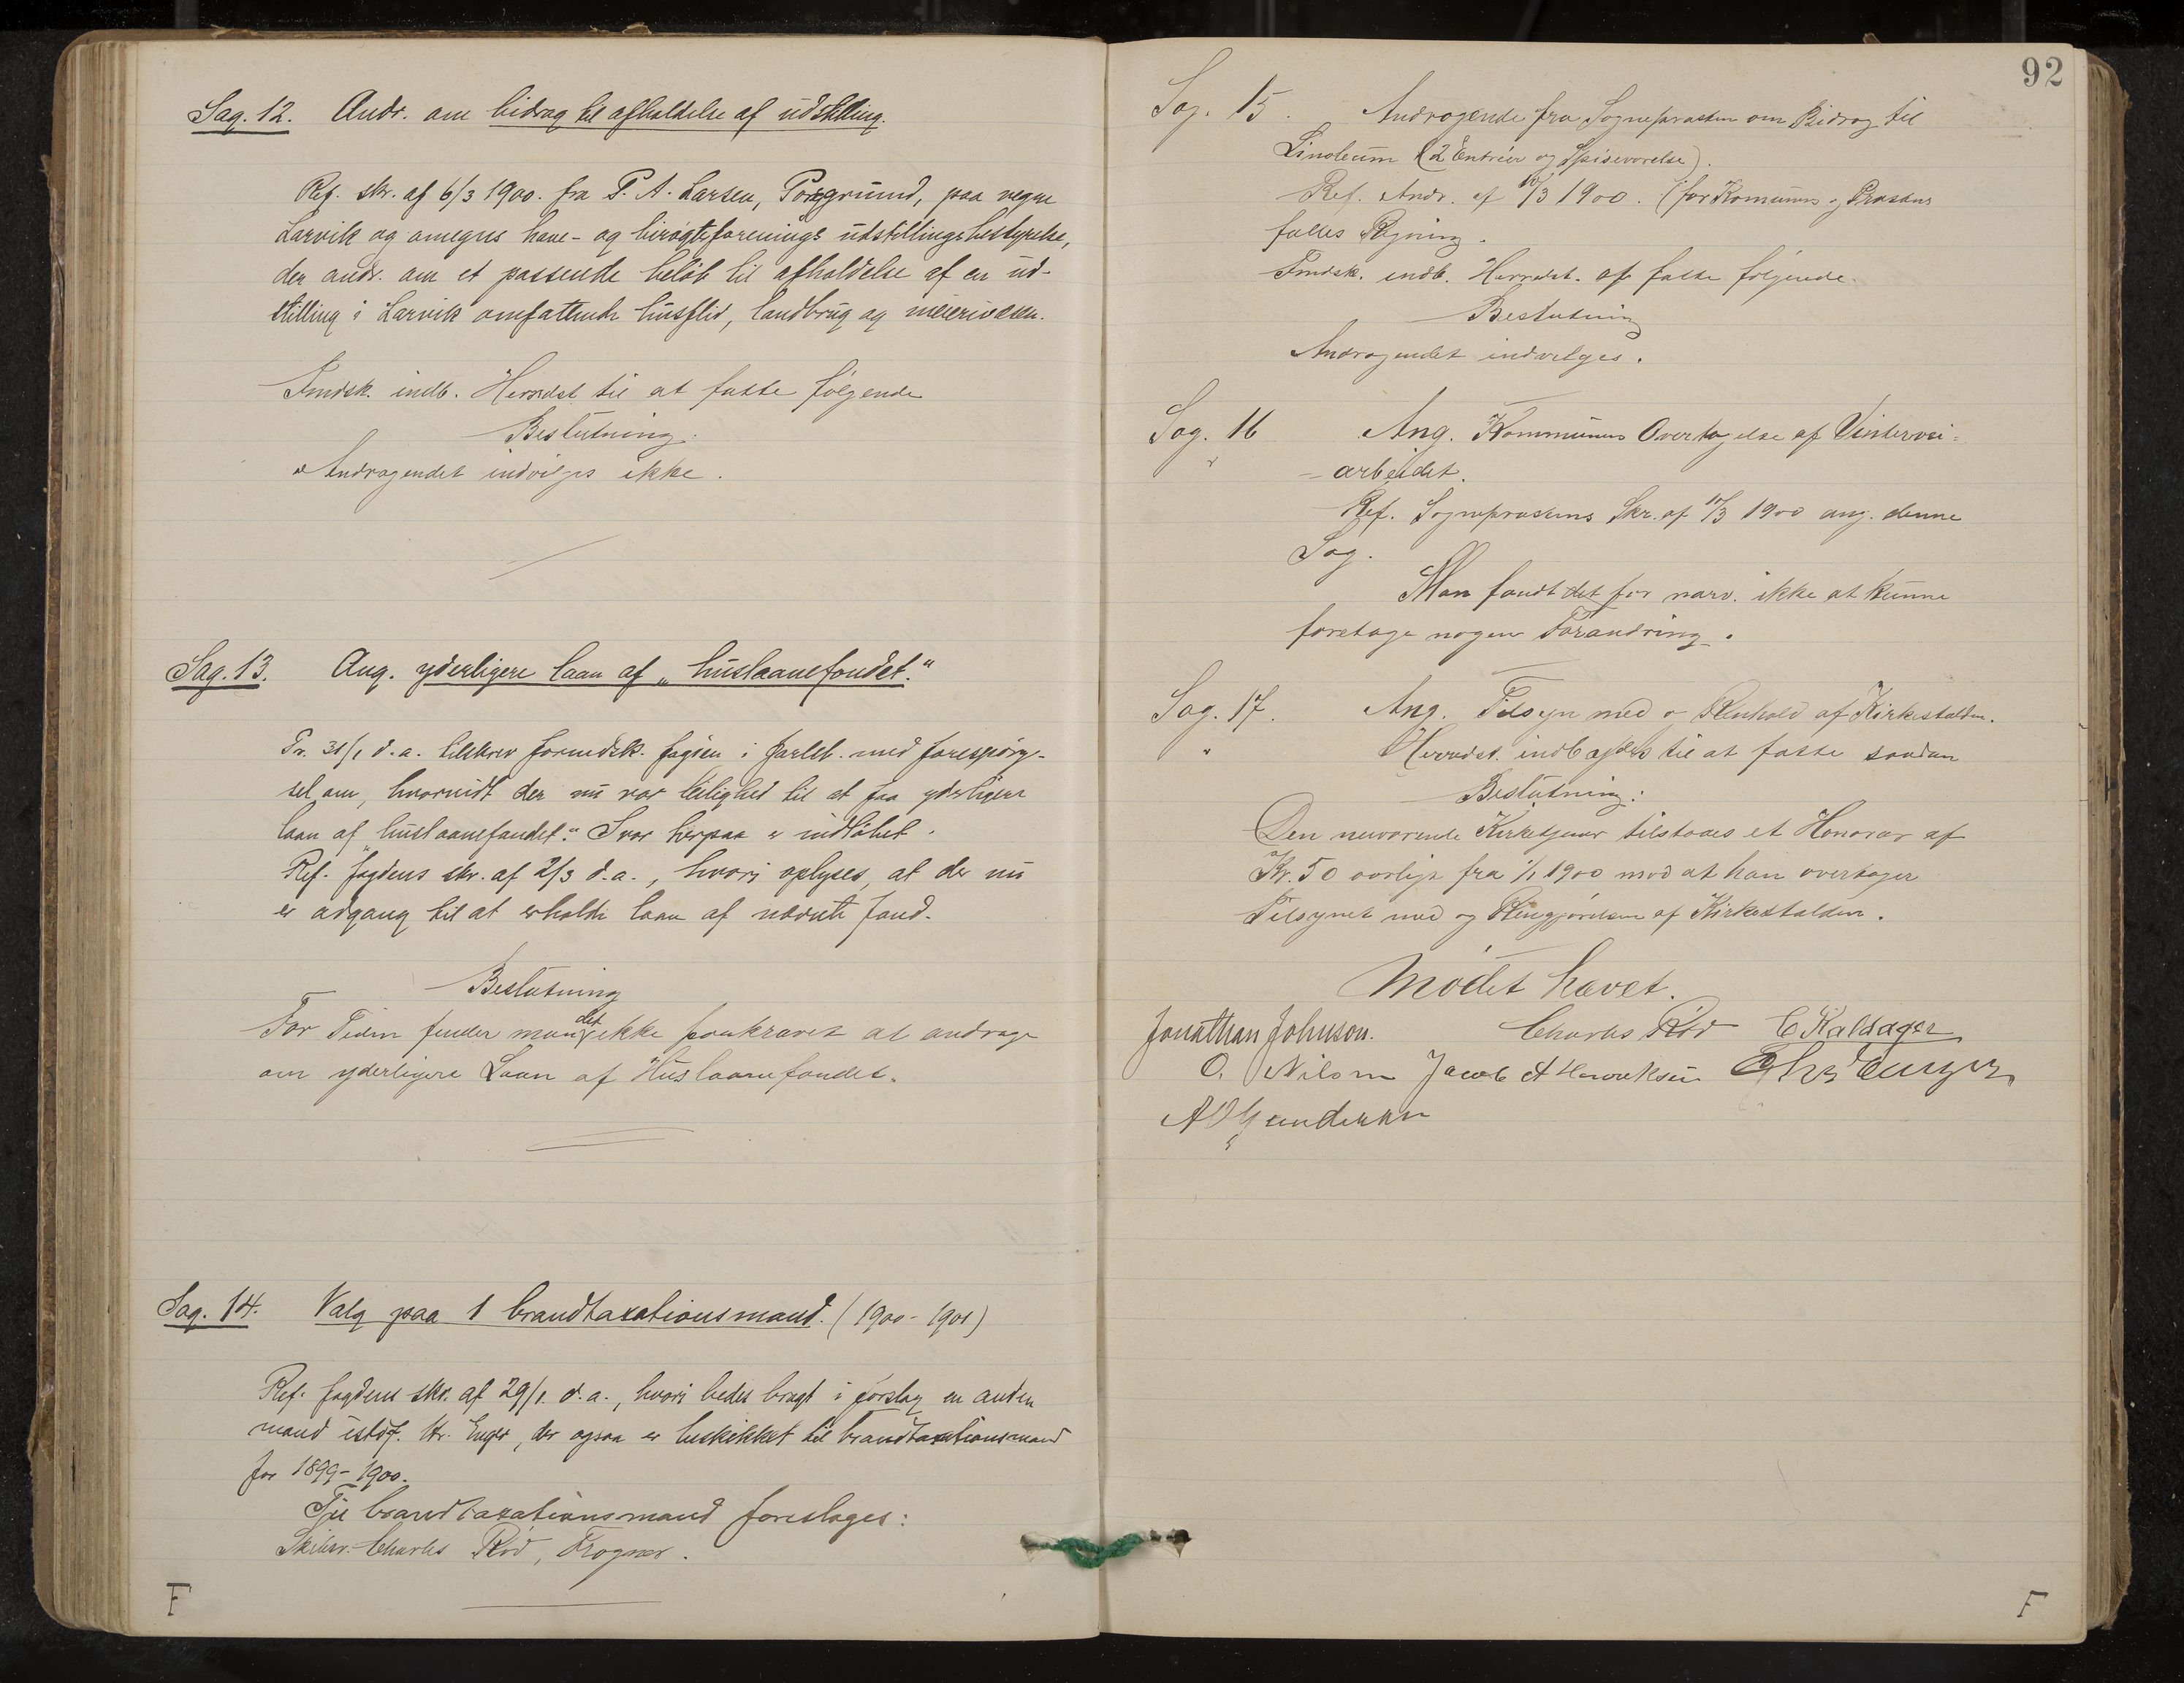 Sag. 12. Andr. om bidrag til afholdelse af udstilling.
Ref. skr. af 6/3 1900. fra P. A. Larsen, Porsgrund, paa vegne
Larvik og omegns have- og birøgtsforenings udstillingsbestyrelse,
der andr. om et passende beløb til afholdelse af en ud-
stilling i Larvik omfattende husflid, landbrug og meierivæsen.
Fmdsk. indb. Herredst til at fatte følgende
Beslutning:
Andragendet indvilges ikke.
Sag. 13. Ang. yderligere laan af „huslaanefondet."
Pr. 31/1 d.a. tilskrev formdsk. fogden i Jarlsb. med forespørg-
sel om, hvorvidt der nu var leilighed til at faa yderligere
laan af „huslaanefondet." Svar herpaa er indløbet.
Ref. fogdens skr. af 2/3 d.a., hvori oplyses, at der nu
er adgang til at erholde laan af nævnte fond.
Beslutning
For Tiden finder man det ikke paakrævet at andrage
om yderligere Laan af Huslaanefondet.
Sag. 14. Valg paa 1 brandtaxationsmand. (1900-1901)
Ref. fogdens skr. af 29/1. d.a., hvori bedes bragt i forslag en anden
mand istdf. Hr. Enger, der ogsaa er beskikket til brandtaxationsmand
for 1899-1900.
Til brandtaxationsmand foreslages:
Skibsr. Charles Rød, Frogner.
F
92
Sag. 15. Andragende fra Sognepræsten om Bidrag til
Linoleum (2 Entréer og Spiseværelse).
Ref. Andr. af 10/3 1900. (for Komunens og Præstens
fælles Regning.
Fmdsk. indb. Herredst. at fatte følgende
Beslutning
Andragendet indvilges.
Sag. 16 Ang. Kommunens Overtagelse af Vintervei-
arbeidet.
Ref. Sognepræstens Skr. af 10/3 1900 ang. denne
Sag.
Man fandt det for nærv. ikke at kunne
foretage nogen Forandring.
Sag. 17. Ang. Tilsyn med o Renhold af Kirkestalden.
Herredst. indbydes til at fatte saadan
Beslutning:
Den nuværende Kirketjener tilstaaes et Honorar af
Kr. 50 aarlig fra 1/1 1900 mod at han overtager
Tilsynet med og Rengjørelsen af Kirkestalden.
Mødet hævet.
Jonathan Johnson. Charles Rød C. Kaldager
O. Nilsen Jacob A Henriksen Chr Enger
A O Gundersen
F